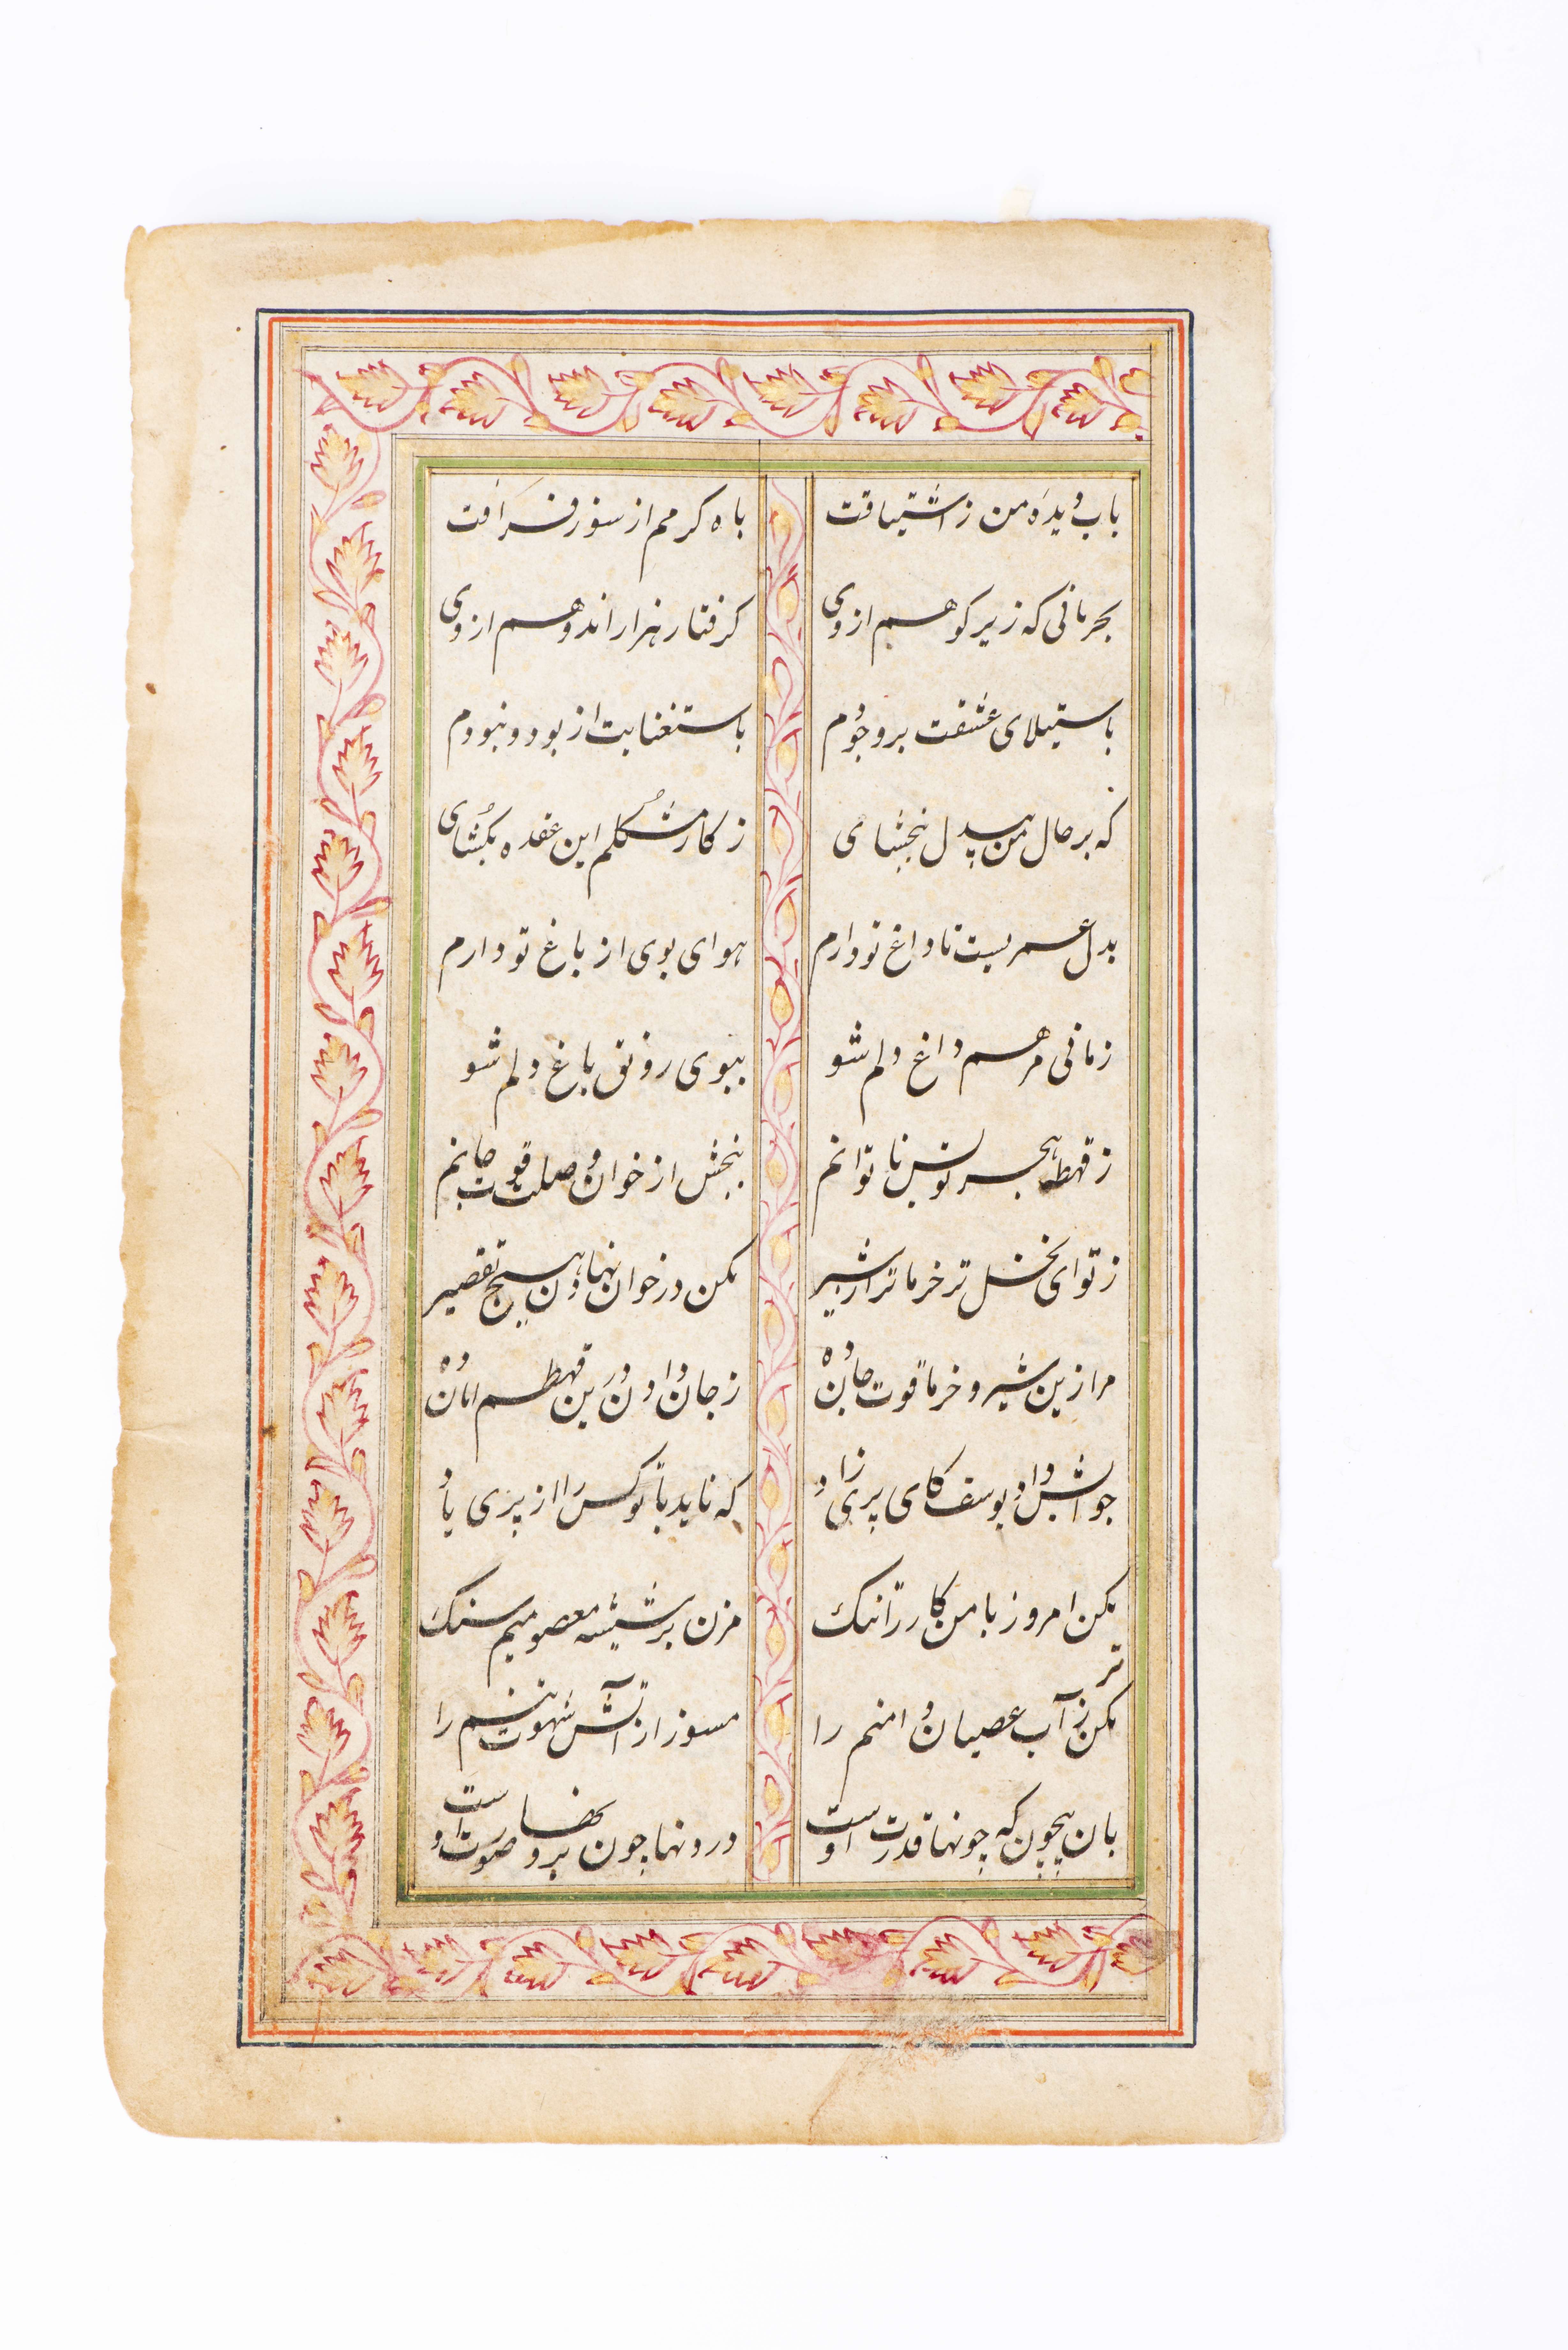 بآب دیده من ز اشتیاقت باه کرمم از سوز فراقت
بحرمانی که زیر کوهم از وی کرفتار هزار اندوهم از وی
باستیلای عشقت بر وجودم باستغنایت از بود و نبودم
که بر حال من بیدل ببخشای ز کار مشکلم این عقده بکشای
بدل عمریست تا داغ تو دارم هوای بوی از باغ تو دارم
زمانی مرهم داغ دلم شو ببوی رونق باغ دلم شو
ز قهط هجر تو بس ناتوانم ببخش از خوان وصلت قوت جانم
ز تو ای نخل تر خرما ترا شیر مکن در خوان نهادن هیچ تقصیر
مرا زین شیر و خرما قوت جان ده ز جان دادن درین قهطم امان ده
جوابش داد یوسف کای پری زاد که ناید با تو کس را از پری یاد
مکن امروز با من کار را تنک مزن بر شیشه معصومیم سنک
مکن تر ز آب عصیان دامنم را مسوز از آتش شهوت تنم را
بان بیچون که چونها قدرت اوست درونها چون برونها صورت اوست